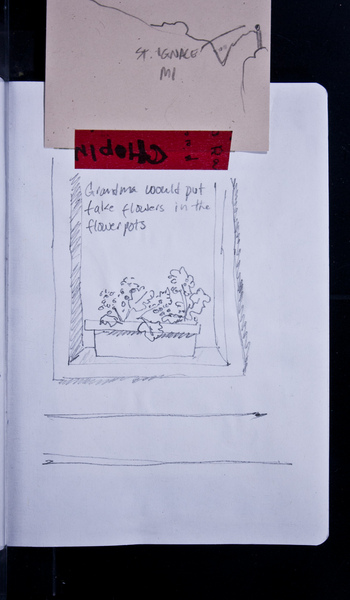 ST. IGNACE
MI
Chopin
Grandma would put
fake flowers in the
flowerpots